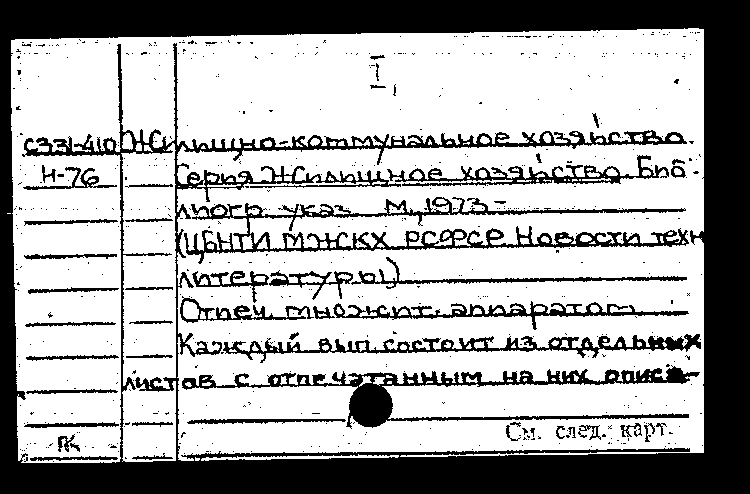 I,
С331-410 Жилищно-коммунальное хозяйство.
Н-76 Серия Жилищное хозяйство. Биб-
лиогр. указ. М., 1973-
(ЦБНТИ МЖКХ РСФСР Новости техн
литературы)
Отпеч. множит. аппаратом
Каждый вып. состоит из отдельных
листов с отпечатанным на них описа-
См. след. карт.
ПК